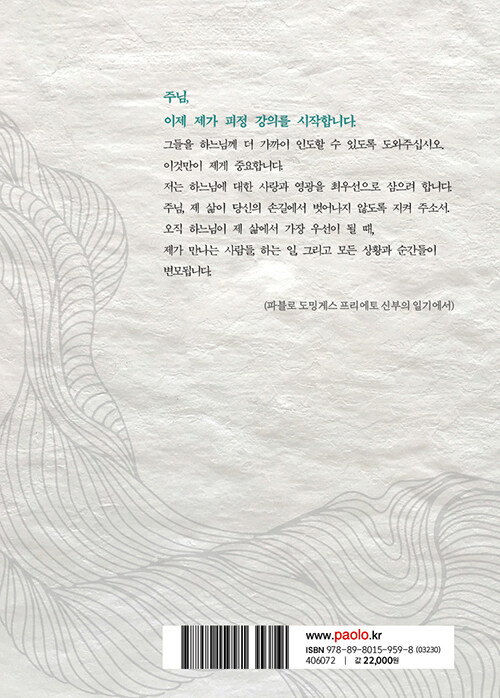 주님,
이제 제가 피정 강의를 시작합니다.
그들을 하느님께 더 가까이 인도할 수 있도록 도와주십시오.
이것만이 제게 중요합니다.
저는 하느님에 대한 사랑과 영광을 최우선으로 삼으려 합니다.
주님, 제 삶이 당신의 손길에서 벗어나지 않도록 지켜 주소서.
오직 하느님이 제 삶에서 가장 우선이 될 때,
제가 만나는 사람들, 하는 일, 그리고 모든 상황과 순간들이
변모됩니다.
(파블로 도밍게스 프리에토 신부의 일기에서)
www.paolo.kr
ISBN 978-89-8015-959-8 (03230)
406072 | 값 22,000원